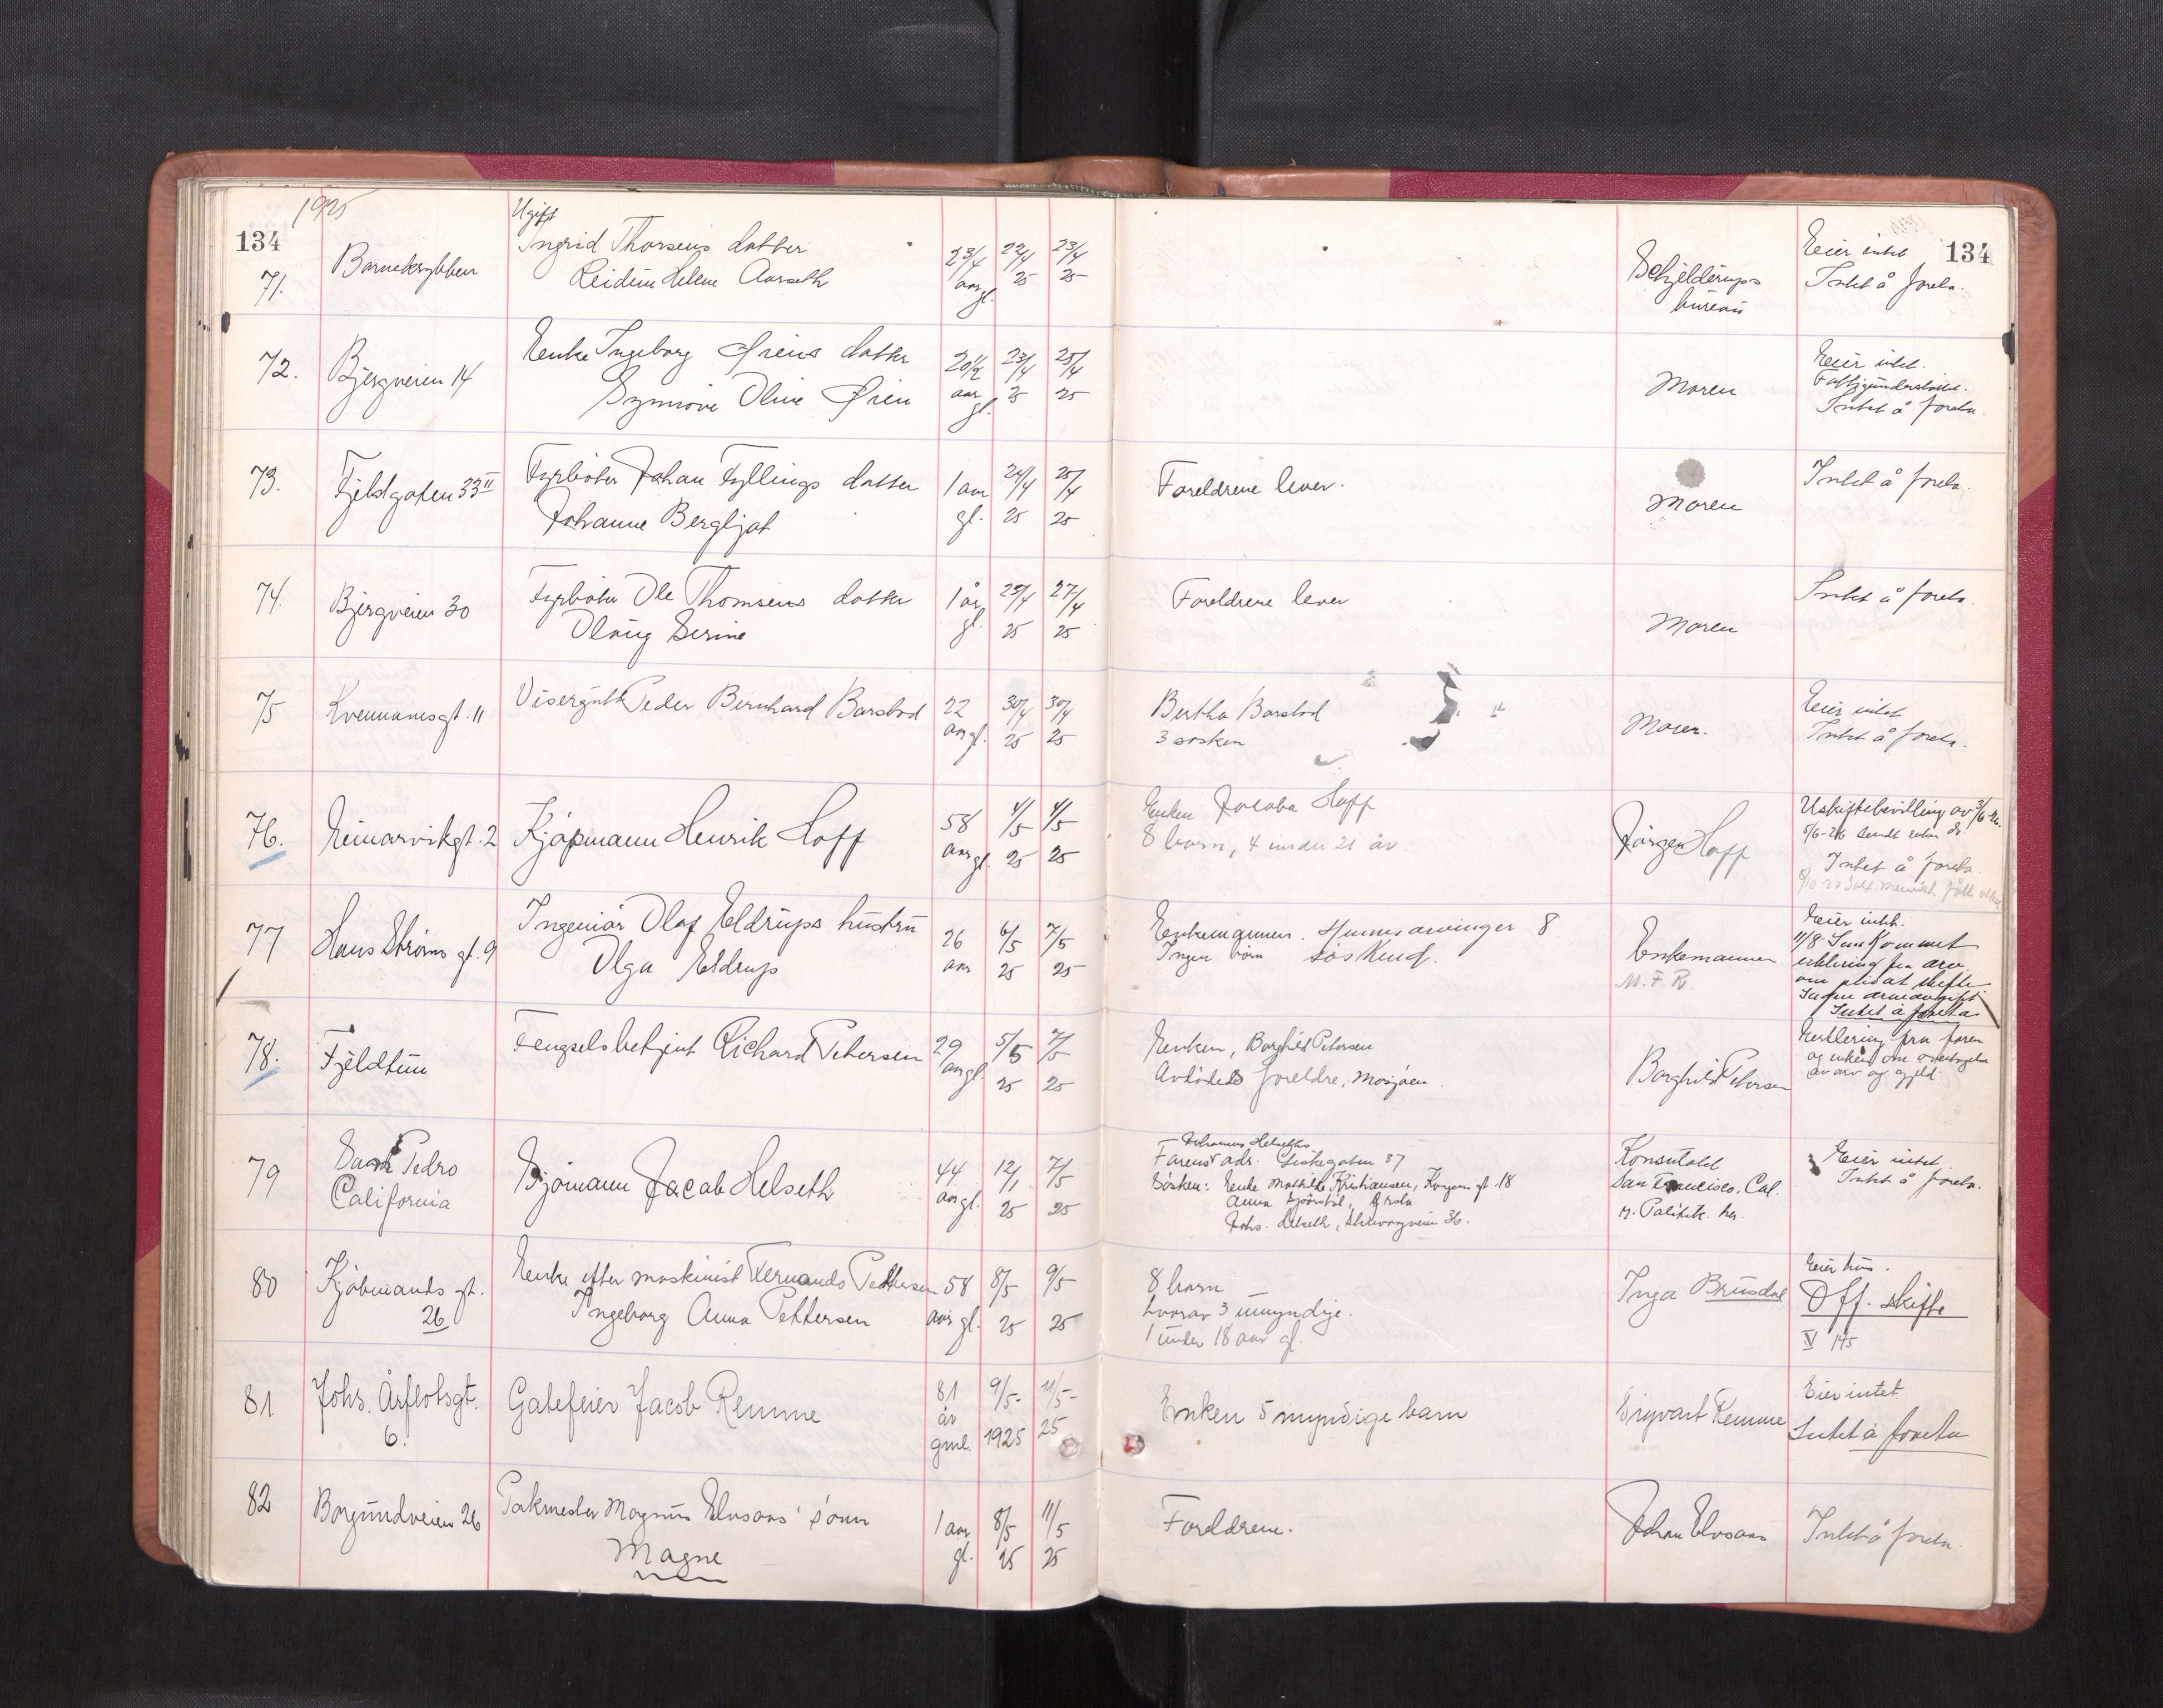 1925
134
134
71.
Barnekrybben
Ugift
Ingrid Thorsens datter
Reidun Helene Aarseth
2 3/4
aar
gl.
22/4
25
23/4
25
Schjelderups
bureau
Eier intet
Intet å foreta.
72.
Bjørgveien 14
Enke Ingeborg Øiens datter
Synnöve Oline Øien
20 1/2
aar
gl.
23/4
25
25/4
25
Moren
Eier intet.
Fattigunderstøttet.
Intet å foreta.
73.
Fjeldgaten 33 II
Fyrböter Johan Fyllings datter
Johanne Bergljot
1 aar
gl.
24/4
25
25/4
25
Foreldrene lever.
Moren
Intet å foreta.
74.
Bjørgveien 30
Fyrböter Ole Thomsens datter
Olaug Serine
1 år
gl.
25/4
25
27/4
25
Foreldrene lever
Moren
Intet å foreta
75
Kvennanesgt. 11
Visergutt Peder Bernhard Barstad
22
aar gl.
30/4
25
30/4
25
Bertha Barstad
3 søsken
Moren.
Eier intet
Intet å foreta.
76.
Reinarvikgt. 2
Kjöpmann Henrik Hoff
58
aar gl.
4/5
25
4/5
25
Enken Jacoba Hoff
8 barn, 4 under 21 år.
Jörgen Hoff
Uskiftebevilling av 3/6-26.
5/6-26 sendt
Intet å foreta.
77
Hans Strøms gt. 9
Ingeniör Olaf Eldrups hustru
Olga Eldrup
26
aar
6/5
25
7/5
25
Enkemannen. Hennes arvinger 8
Ingen barn søskend.
Enkemannen
M.F.R.
Eier intet.
11/8 Innkommet
erklæring fra arv.
om privat skifte
Ingen arveavgift
Intet å foreta
78.
Fjeldtun
Fengselsbetjent Richard Petersen
29
aar gl.
5/5
25
7/5
25
Enken, Borghild Petersen
Avdödes foreldre, Mosjöen.
Borghild Petersen
Erklering fra faren
og enken om overtagelse
av arv og gjeld.
79
San Pedro
California
Sjömann Jacob Helseth
44
aar gl.
12/1
25
7/5
25
Johannes Helseths
Farens adr. Giskegaten 37
Søsken: Enke Mathilde Kristiansen, Kongens gt 18
Anna
Johs. Helseth, 36.
Konsulatet
San Francisco, Cal.
n. Politik. her.
Eier intet
Intet å foreta.
80
Kjöbmands gt.
26
Enke efter maskinist Fernando Pettersen
Ingeborg Anna Pettersen
58
aar gl.
8/5
25
9/5
25
8 barn
hvorav 3 umyndige.
1 under 18 aar gl.
Inga Brusdal
Eier hus.
Off. skifte
V 145
81
Johs. Årflotsgt.
6.
Gatefeier Jacob Remme
81
år
gml.
9/5-
1925
11/5-
25
Enken 5 myndige barn
Sigvart Remme
Eier intet.
Intet å foreta
82
Borgundveien 26
Pakmester Magnus Elvsaas' sönn
Magne
1 aar
gl.
8/5
25
11/5
25
Foreldrene.
Johan Elvsaas
Intet å foreta.